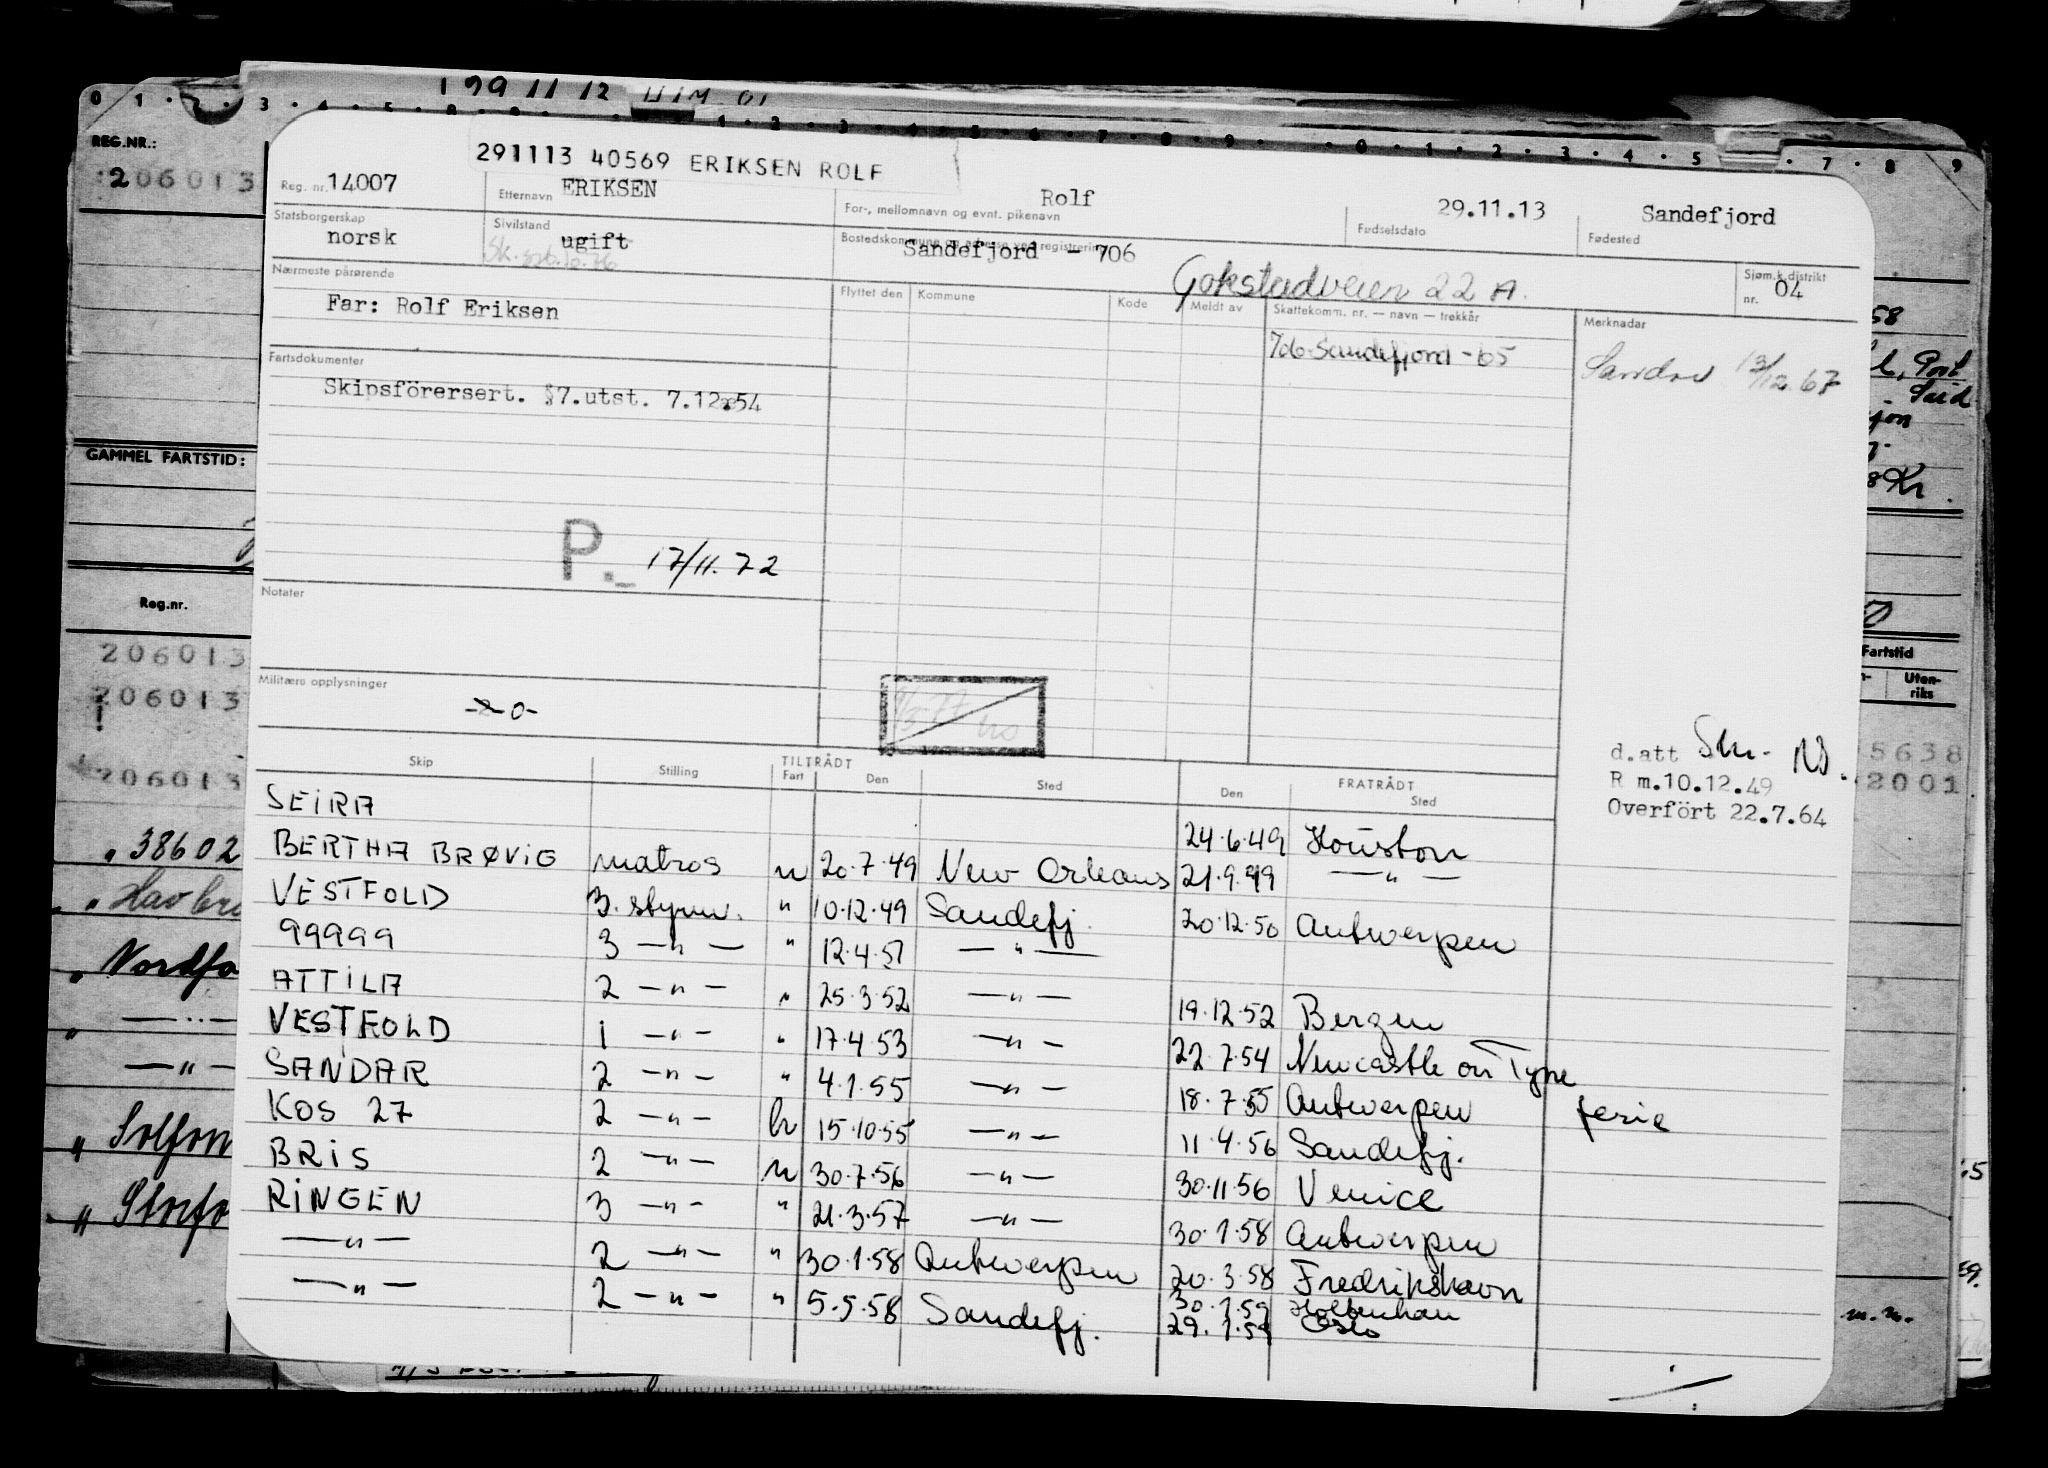 291113 40569 ERIKSEN ROLF
Reg. nr. 14007 Etternavn ERIKSEN For-, mellomnavn og evnt. pikenavn Rolf 29.11.13 Fødselsdato Sandefjord Fødested
Statsborgerskap norsk Sivilstand ugift Bostedskommune og adresse ved registrering Sandefjord - 706
Gokstadveien 22 A. Sjøm.k.distrikt nr. 04
Nærmeste pårørende
Far: Rolf Eriksen
Flyttet den Kommune Kode Meldt av Skattekomm. nr. — navn — trekkår Merknadar
706 Sandefjord - 65
Sandar 13/12 67
Fartsdokumenter
Skipsförersert. §7.utst. 7.12.54
P. 17/11.72
Notater
Militære opplysninger
-0-
d.att
R m.10.12.49
Overfört 22.7.64
Skip Stilling TILTRÅDT Fart Den Sted FRATRÅDT Den Sted
SEIRA 24.6.49 Houston
BERTHA BRØVIG matros u 20.7.49 New Orleans 21.9.49 —"—
VESTFOLD 3. styrm. " 10.12.49 Sandefj. 20.12.50 Antwerpen
99999 3 —"— " 12.4.51 —"—
ATTILA 2 —"— " 25.3.52 —"— 19.12.52 Bergen
VESTFOLD 1 —"— " 17.4.53 —"— 22.7.54 Newcastle on Tyne
SANDAR 2 —"— " 4.1.55 —"— 18.7.55 Antwerpen ferie
KOS 27 2 —"— hv 15.10.55 —"— 11.4.56 Sandefj.
BRIS 2 —"— u 30.7.56 —"— 30.11.56 Venice
RINGEN 3 —"— " 21.3.57 —"— 30.1.58 Antwerpen
—"— 2 —"— " 30.1.58 Antwerpen 20.3.58 Fredrikshavn
—"— 2 —"— " 5.5.58 Sandefj. 30.1.59
29.1.59 Oslo
REG.NR.:
206013
GAMMEL FARTSTID:
Reg.nr.
206013
206013
206013
" 38602
Fartstid
Uten-
riks
5638
2001